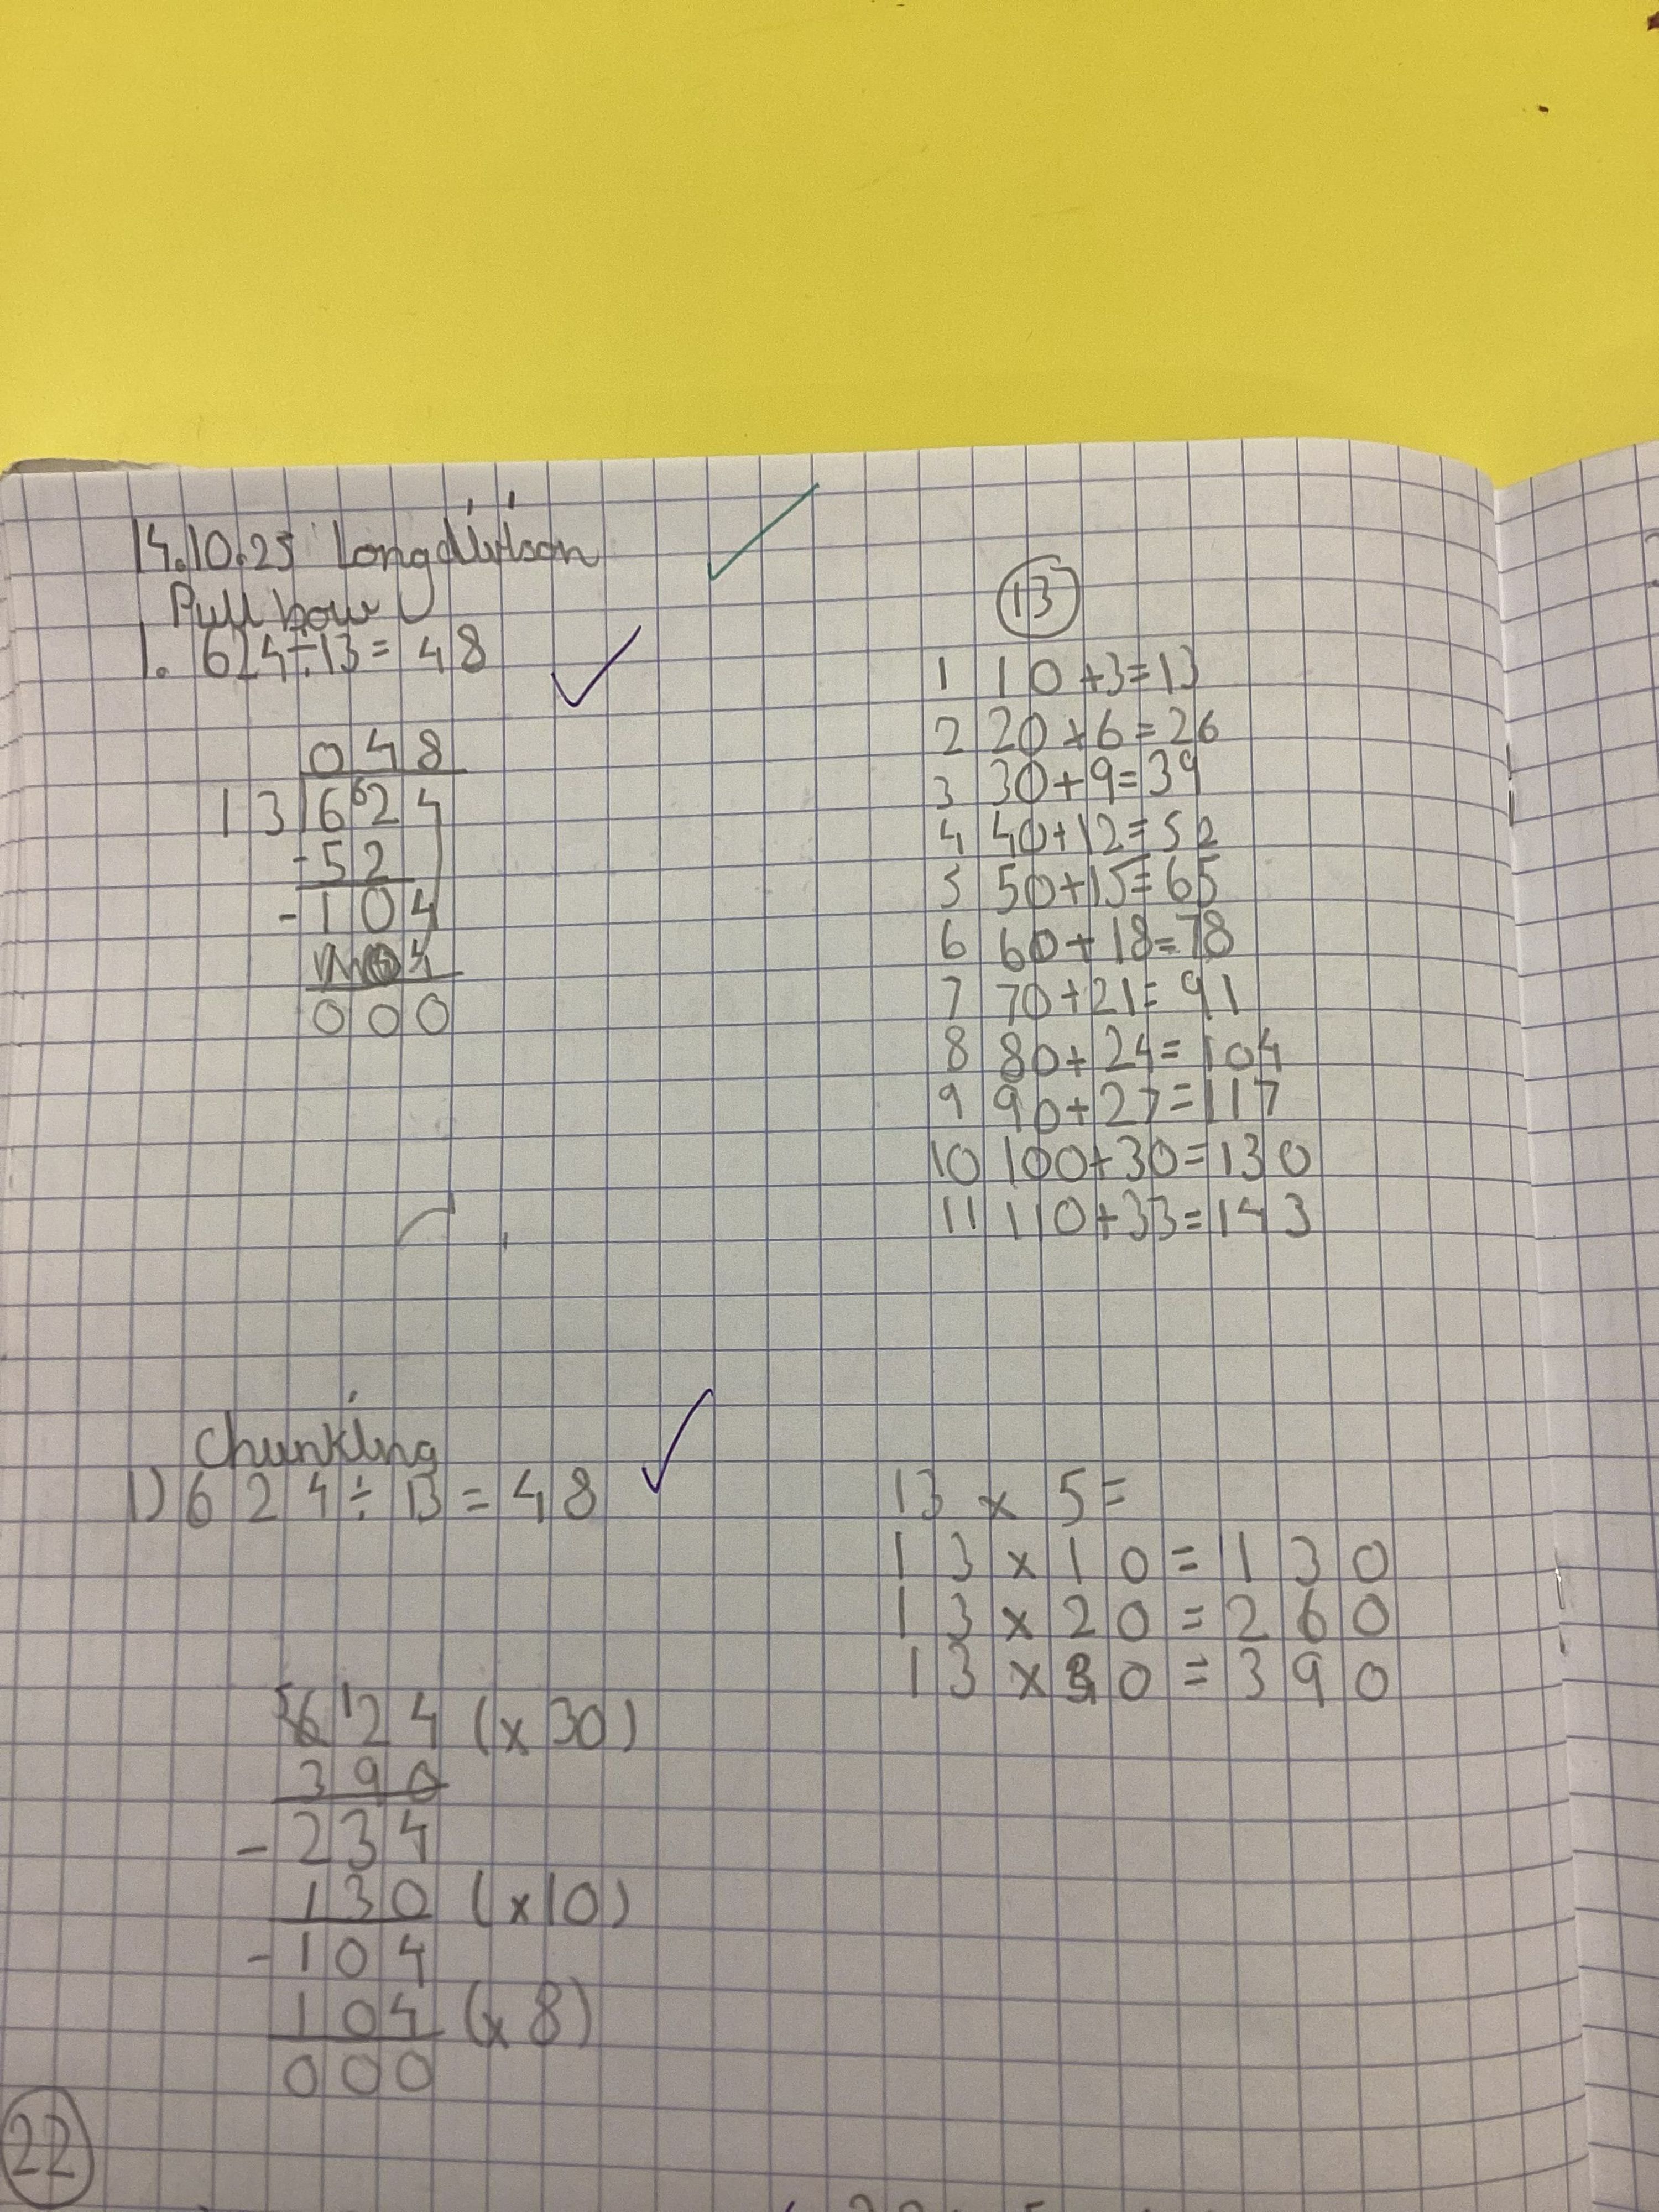 14.10.25 Long divison
Pull bow
1. 624÷13= 48
048
13 6⁶24
-52
-104
104
000
13
1 10+3=13
2 20+6=26
3 30+9=39
4 40+12=52
5 50+15=65
6 60+18=78
7 70+21=91
8 80+24=104
9 90+27=117
10 100+30=130
11 110+33=143
Chunking
1) 624÷13=48
13 x 5=
13x10=130
13x20=260
13x30=390
⁵6¹24 (x30)
390
-234
130 (x10)
-104
104 (x8)
000
22